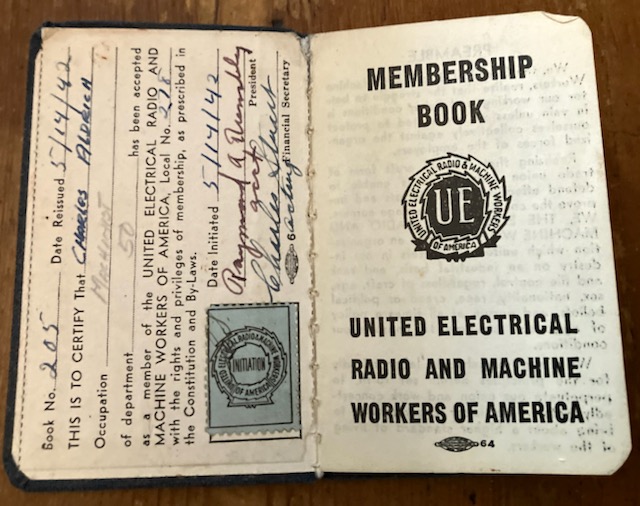 Book No. 205 Date Reissued 5/14/42
THIS IS TO CERTIFY That CHARLES ALDRICH
Occupation MACHINIST
of department 50 has been accepted
as a member of the UNITED ELECTRICAL RADIO AND
MACHINE WORKERS OF AMERICA, Local No. 278
with the rights and privileges of membership, as prescribed in
the Constitution and By-Laws.
Date Initiated 5/14/42
Raymond A
President
Charles
acting Financial Secretary
UNITED ELECTRICAL RADIO & MACHINE WORKERS
INITIATION
OF AMERICA
MEMBERSHIP
BOOK
UNITED ELECTRICAL RADIO & MACHINE WORKERS
UE
OF AMERICA
UNITED ELECTRICAL
RADIO AND MACHINE
WORKERS OF AMERICA
64